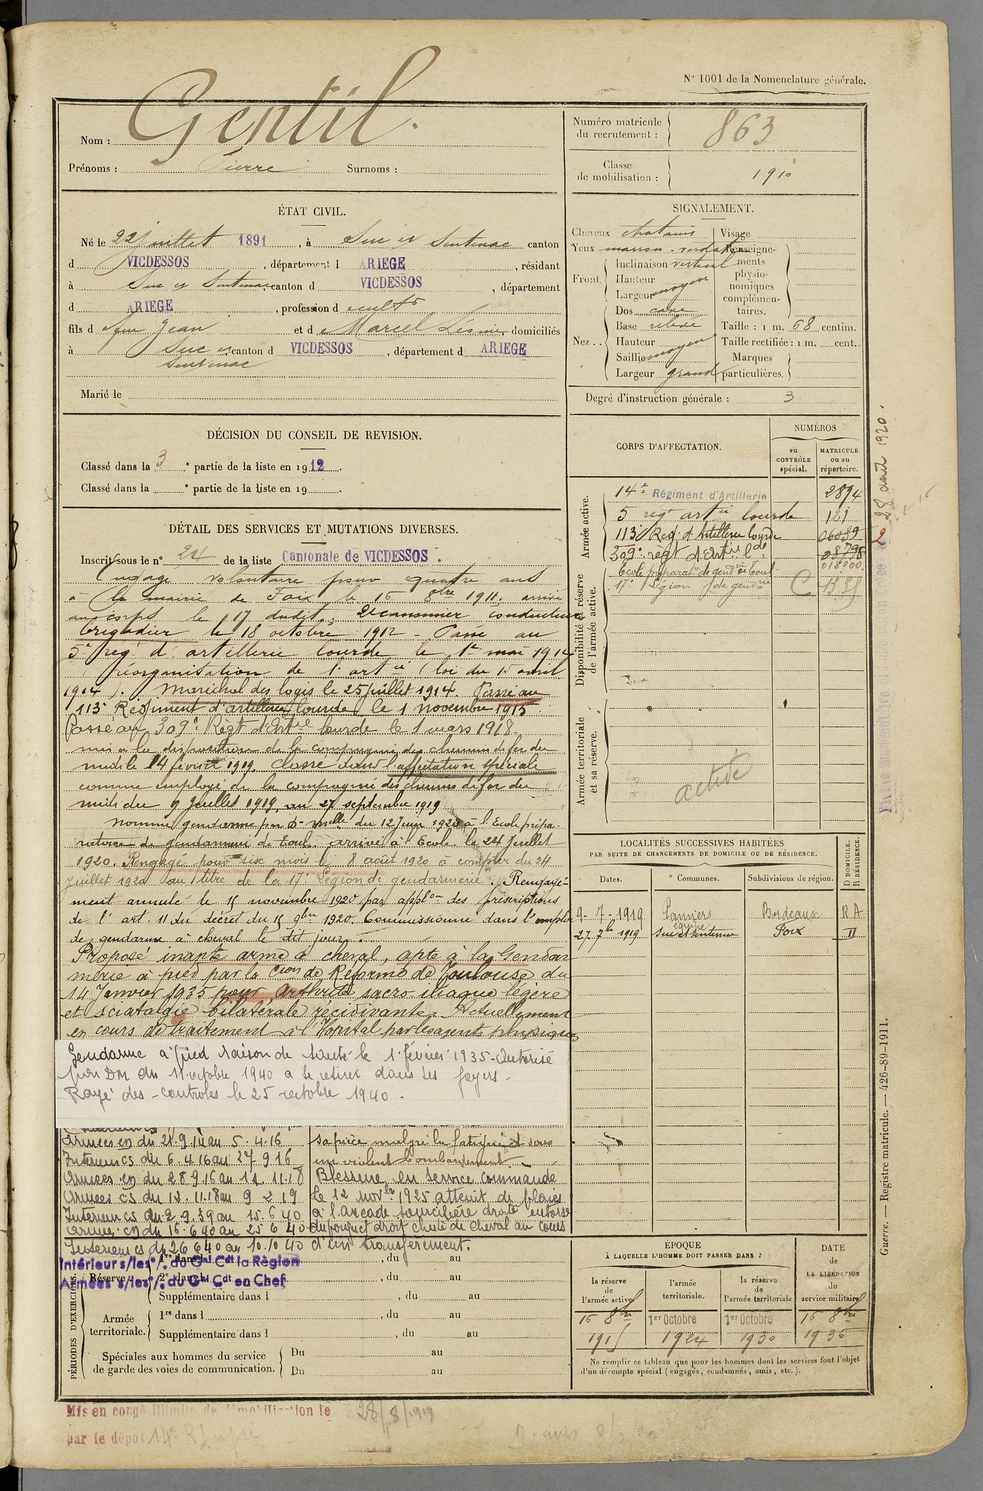 N° 1001 de la Nomenclature générale.
Nom : Gentil
Prénoms : Pierre Surnoms :
Numéro matricule du recrutement : 863
Classe de mobilisation : 1910
ÉTAT CIVIL.
Né le 22 juillet 1891, à Suc et Sentenac canton
d VICDESSOS, département d ARIEGE, résidant
à Suc et Sentenac canton d VICDESSOS, département
d ARIEGE, profession d cultr
fils d feu Jean et d e Marcel domiciliés
à Suc et Sentenac canton d VICDESSOS, département d ARIEGE
Marié le
SIGNALEMENT.
Cheveux chatains
Yeux marron verdatre
Front Inclinaison vertical
Hauteur
Largeur moyen
Nez Dos cave
Base relevé
Hauteur
Saillie moyen
Largeur grand
Visage
Renseignements physionomiques complémentaires.
Taille : 1 m. 68 centim.
Taille rectifiée : 1 m. cent.
Marques particulières.
Degré d'instruction générale : 3
DÉCISION DU CONSEIL DE REVISION.
Classé dans la 3e partie de la liste en 1912.
Classé dans la e partie de la liste en 19
DÉTAIL DES SERVICES ET MUTATIONS DIVERSES.
Inscrit sous le n° 24 de la liste Cantonale de VICDESSOS.
Engagé volontaire pour quatre ans
à la mairie de Foix le 16 8bre 1911, arrivé
au corps le 17 dudit, 2e canonnier conducteur
brigadier le 18 octobre 1912 - Passé au
5e reg. d'artillerie lourde le 1er mai 1914
(réorganisation de l'artie (loi du 15 avril
1914). Maréchal des logis le 25 juillet 1914. Passé au
113e Régiment d'artillerie lourde le 1 novembre 1915
Passé au 309e Regt d'Artie lourde le 1 mars 1918.
mis à la disposition de la compagnie des chemins de fer du
midi le 14 février 1919. Classé dans l'affectation spéciale
comme employé de la compagnie des chemins de fer du
midi du 9 Juillet 1919, au 27 septembre 1919
nommé gendarme par d. mlle du 12 Juin 1920 à l'Ecole prépa-
ratoire de gendarmerie de Toul. arrivé à l'Ecole le 24 Juillet
1920. Rengagé pour six mois le 8 août 1920 à compter du 24
Juillet 1920 au titre de la 17e Légion de gendarmerie. Rengage-
ment annulé le 15 novembre 1920 par applon des prescriptions
de l'art. 11 du décret du 15 9bre 1920. Commissionné dans l'emploi
de gendarme à cheval le dit jour.
Proposé inapte arme à cheval, apte à la Gendar-
merie à pied par la Cion de Réforme de Toulouse du
14 Janvier 1935 pour arthrite sacro iliaque légère
et sciatalgie bilatérale récidivante. Actuellement
en cours de traitement à l'Hopital par les agents physiques
Gendarme à pied raison de santé le 1 février 1935 - Autorisé
par DM du 11 octobre 1940 a se retirer dans ses foyers -
Rayé des controles le 25 octobre 1940.
Armées en du 5.4.16
Intérieur cs du 6.4.16 au 27.9.16
Armées en du 28.9.16 au 11.11.18
Armées cs du 12.11.18 au 9 2 19
Intérieur cs du 2.9.39 au 15.6.40
Armées en du 16.6.40 au 25 6 40
Intérieur cs du 26 6 40 au 10.10 40
malgré la fatigue et sous
un violent bombardement.
Blessure en service commandé
le 12 novbre 1925 atteint de plaies
à l'arcade sourcilière droite, entorse
du poignet droit chute de cheval au cours
d'un transférement.
Intérieur s/les o/. du Gal Cdt la Région
Armées s/les o/. du Gal Cdt en Chef
PÉRIODES D'EXERCICES.
Réserve 1re dans l , du au
2e dans l , du au
Supplémentaire dans l , du au
Armée territoriale. 1re dans l , du au
Supplémentaire dans l , du au
Spéciales aux hommes du service de garde des voies de communication. Du au
Du au
CORPS D'AFFECTATION.
NUMÉROS
au CONTRÔLE spécial.
MATRICULE ou au répertoire.
Armée active.
14e Régiment d'Artillerie 2894
5 reg artie lourde 141
113 Reg. d'Artillerie lourde 06089
309e regt d'Artie lde 08798
018900
Ecole préparatre de gendrie Toul
17e Légion de gendrie C
Disponibilité et réserve de l'armée active.
Armée territoriale et sa réserve.
activé
LOCALITÉS SUCCESSIVES HABITÉES
PAR SUITE DE CHANGEMENTS DE DOMICILE OU DE RÉSIDENCE.
Dates. Communes. Subdivisions de région. D DOMICILE. R RÉSIDENCE.
9-7-1919 Pamiers Bordeaux R A
27.7bre 1919 Suc et Sentenac Foix D
ÉPOQUE
À LAQUELLE L'HOMME DOIT PASSER DANS :
la réserve de l'armée active
l'armée territoriale.
la réserve de l'armée territoriale
DATE de LA LIBÉRATION du service militaire
16 8bre 1915
1er Octobre 1924
1er Octobre 1930
16 8bre 1936
Ne remplir ce tableau que pour les hommes dont les services font l'objet
d'un décompte spécial (engagés, condamnés, omis, etc.).
28 août 1920.
Guerre. — Registre matricule. — 426-89-1911.
Mis en congé illimité de démobilisation le 28/8/1919
par le dépôt 14e